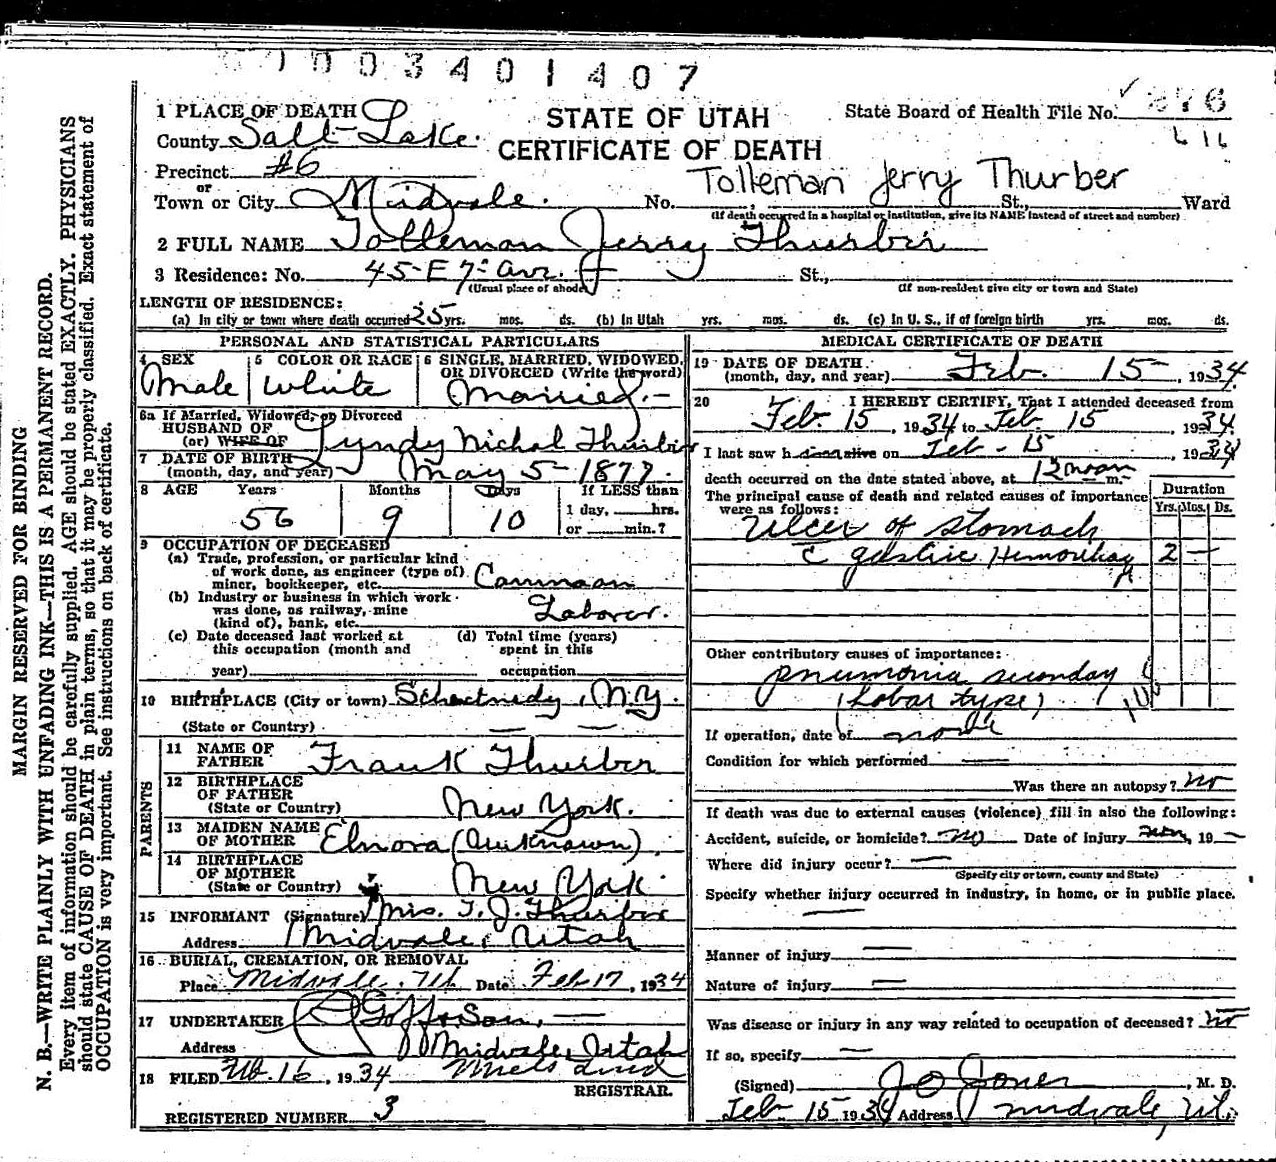 0003401407
1 PLACE OF DEATH
STATE OF UTAH
State Board of Health File No.
County Salt Lake.
CERTIFICATE OF DEATH
616
Precinct #6
Tolleman Jerry Thurber
or
Town or City Midvale. No. , St., Ward
(If death occurred in a hospital or institution, give its NAME instead of street and number)
2 FULL NAME Tolleman Jerry Thurber
3 Residence: No. 45-E 7th Ave. St.,
(Usual place of abode) (If non-resident give city or town and State)
LENGTH OF RESIDENCE:
(a) In city or town where death occurred 25 yrs. mos. ds. (b) In Utah yrs. mos. ds. (c) In U. S., if of foreign birth yrs. mos. ds.
PERSONAL AND STATISTICAL PARTICULARS
4 SEX
Male
5 COLOR OR RACE
White
6 SINGLE, MARRIED, WIDOWED, OR DIVORCED (Write the word)
Married.-
6a If Married, Widowed, or Divorced
HUSBAND OF
(or) WIFE OF Lyndy Nichol Thurber
7 DATE OF BIRTH
(month, day, and year) May 5-1877.
8 AGE Years Months Days If LESS than
56 9 10 1 day, hrs.
or min.?
9 OCCUPATION OF DECEASED
(a) Trade, profession, or particular kind
of work done, as engineer (type of)
miner, bookkeeper, etc. Common
(b) Industry or business in which work
was done, as railway, mine
(kind of), bank, etc. Laborer.
(c) Date deceased last worked at
this occupation (month and
year)
(d) Total time (years)
spent in this
occupation
10 BIRTHPLACE (City or town) Schectnedy, N.Y.
(State or Country)
PARENTS
11 NAME OF
FATHER Frank Thurber
12 BIRTHPLACE
OF FATHER
(State or Country) New York.
13 MAIDEN NAME
OF MOTHER Elnora (Unknown)
14 BIRTHPLACE
OF MOTHER
(State or Country) New York.
15 INFORMANT (Signature) Mrs. T. J. Thurber
Address Midvale, Utah
16 BURIAL, CREMATION, OR REMOVAL
Place Midvale, Ut. Date Feb 17, 1934
17 UNDERTAKER Goff & Son.
Address Midvale, Utah
18 FILED Feb. 16, 1934
REGISTRAR.
REGISTERED NUMBER 3
MEDICAL CERTIFICATE OF DEATH
19 DATE OF DEATH
(month, day, and year) Feb. 15, 1934.
20 I HEREBY CERTIFY, That I attended deceased from
Feb. 15, 1934 to Feb 15 1934.
I last saw h alive on Feb - 15, 1934
death occurred on the date stated above, at 12 noon m.
The principal cause of death and related causes of importance
were as follows:
Duration
Yrs. Mos. Ds.
Ulcer of stomach
c̄ gastric Hemorrhag 2 —
Other contributory causes of importance:
pneumonia secondary
(Lobar type)
If operation, date of none
Condition for which performed —
Was there an autopsy? no
If death was due to external causes (violence) fill in also the following:
Accident, suicide, or homicide? no Date of injury, 19—
Where did injury occur? —
(Specify city or town, county and State)
Specify whether injury occurred in industry, in home, or in public place.
—
Manner of injury —
Nature of injury —
Was disease or injury in any way related to occupation of deceased? no
If so, specify —
(Signed) J O Jones, M. D.
Feb 15 1934 Address Midvale, Ut.
MARGIN RESERVED FOR BINDING
N. B.—WRITE PLAINLY WITH UNFADING INK—THIS IS A PERMANENT RECORD.
Every item of information should be carefully supplied. AGE should be stated EXACTLY. PHYSICIANS
should state CAUSE OF DEATH in plain terms, so that it may be properly classified. Exact statement of
OCCUPATION is very important. See instructions on back of certificate.